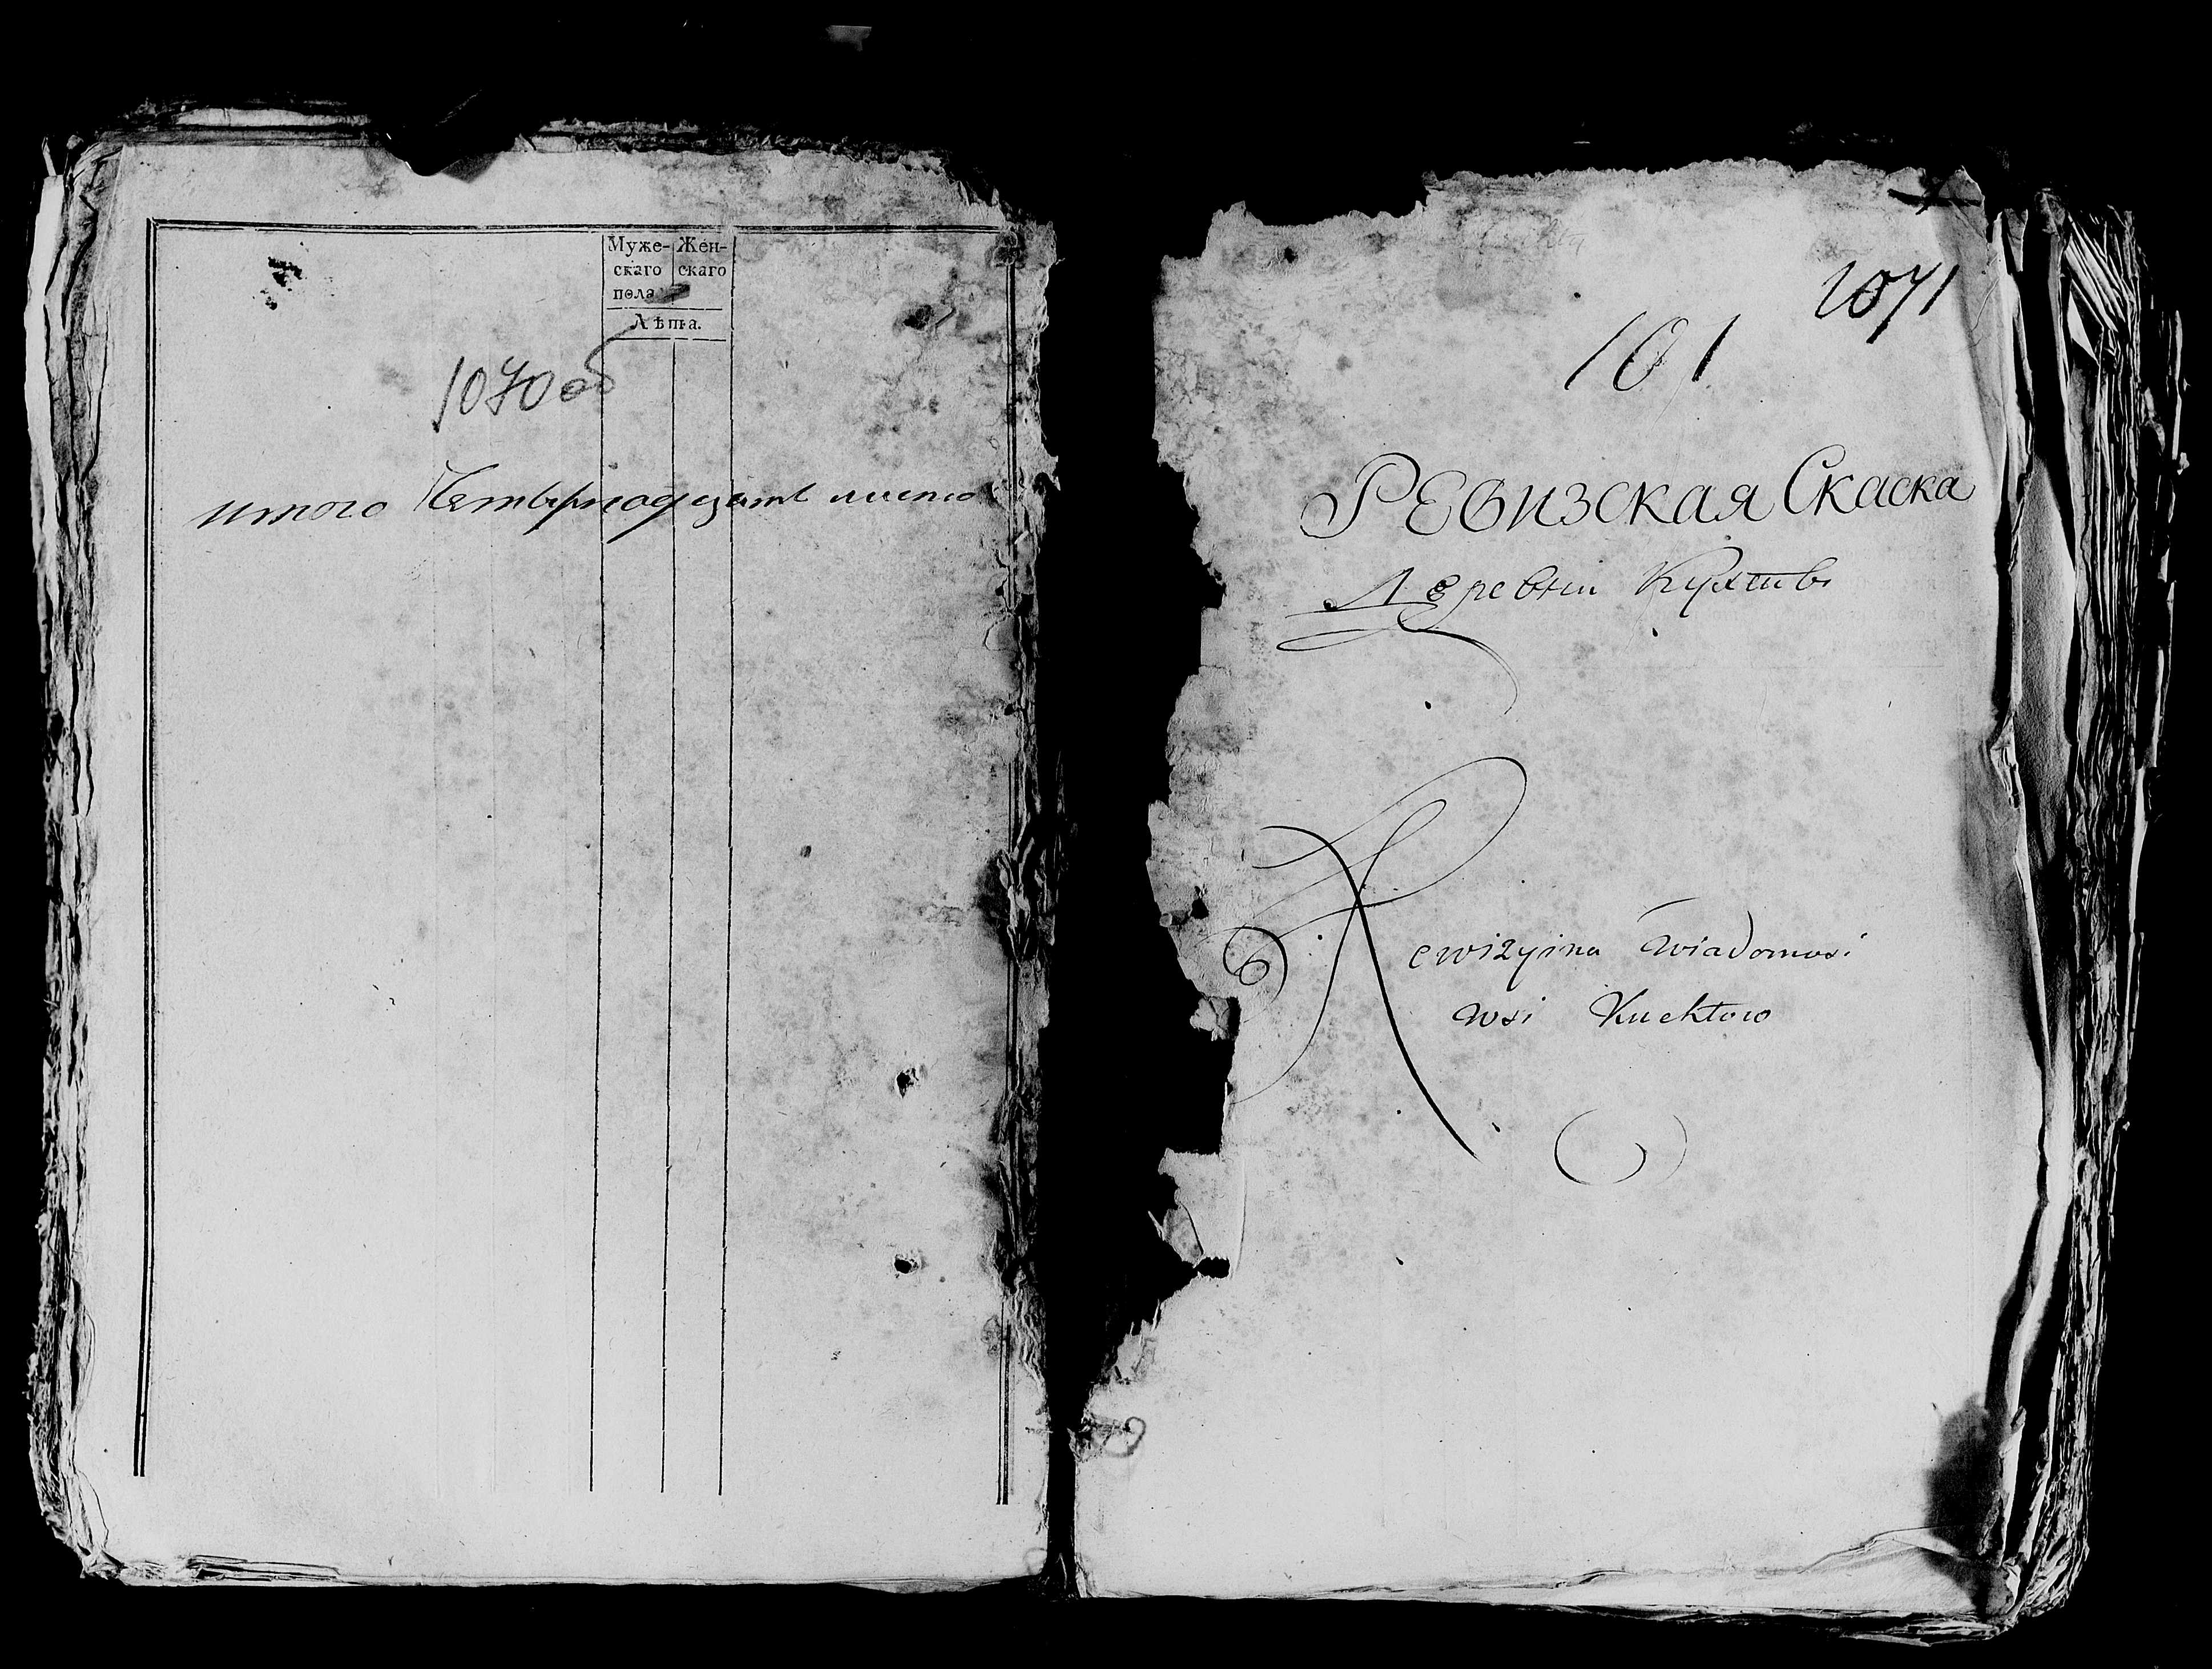 Муже- Жен-
скаго скаго
пола
Лѣта.
1070 об
итого Четырнадцать листо
1071
101
Ревизская Скаска
Деревни Кухтивъ
Rewizyina Wiadomosi
wsi Kuchtow